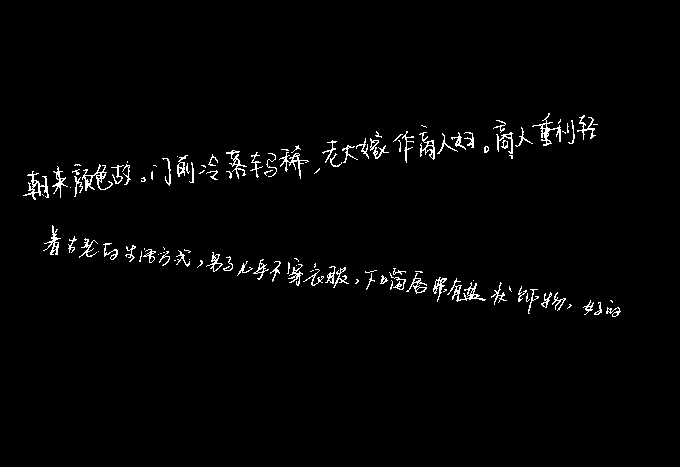 朝来颜色故。门前冷落车马稀,老大嫁作商人妇。商人重利轻
着古老的生活方式,男子几乎不穿衣服,下唇带有盘状饰物,女子的